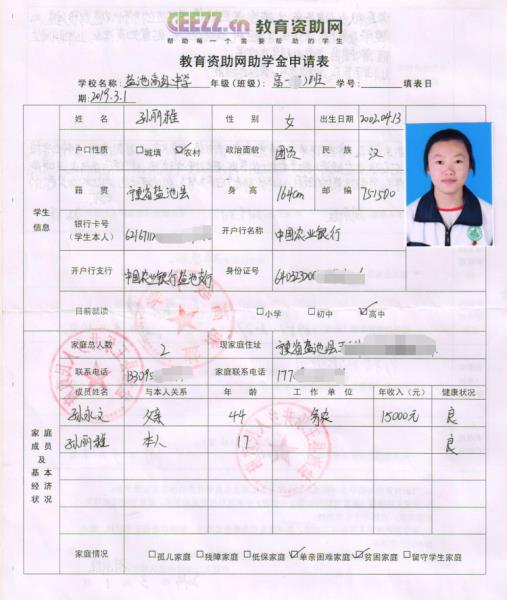 CEEZZ.cn 教育资助网
帮助每一个需要帮助的学生
教育资助网助学金申请表
学校名称: 盐池高级中学 年级(班级): 高一 班 学号: 填表日
期: 2019.3.1
姓 名 孙丽程 性 别 女 出生日期 2002.04.13
户口性质 □城填 ☑农村 政治面貌 团员 民 族 汉
籍 贯 宁夏省盐池县 身 高 164cm 邮 编 751500
学生
信息
银行卡号
(学生本人) 6216711 开户行名称 中国农业银行
开户行支行 中国农业银行盐池支行 身份证号 640323200
目前就读 □小学 □初中 ☑高中
家庭总人数 2 现家庭住址 宁夏省盐池县
联系电话 13095 家庭联系电话 177
成员姓名 与本人关系 年 龄 工 作 单 位 年收入（元） 健康状况
孙永文 父亲 44 务农 15000元 良
孙丽程 本人 17 良
家 庭
成 员
及
基 本
经 济
状 况
家庭情况 □孤儿家庭 □残障家庭 □低保家庭 ☑单亲困难家庭 ☑贫困家庭 □留守学生家庭